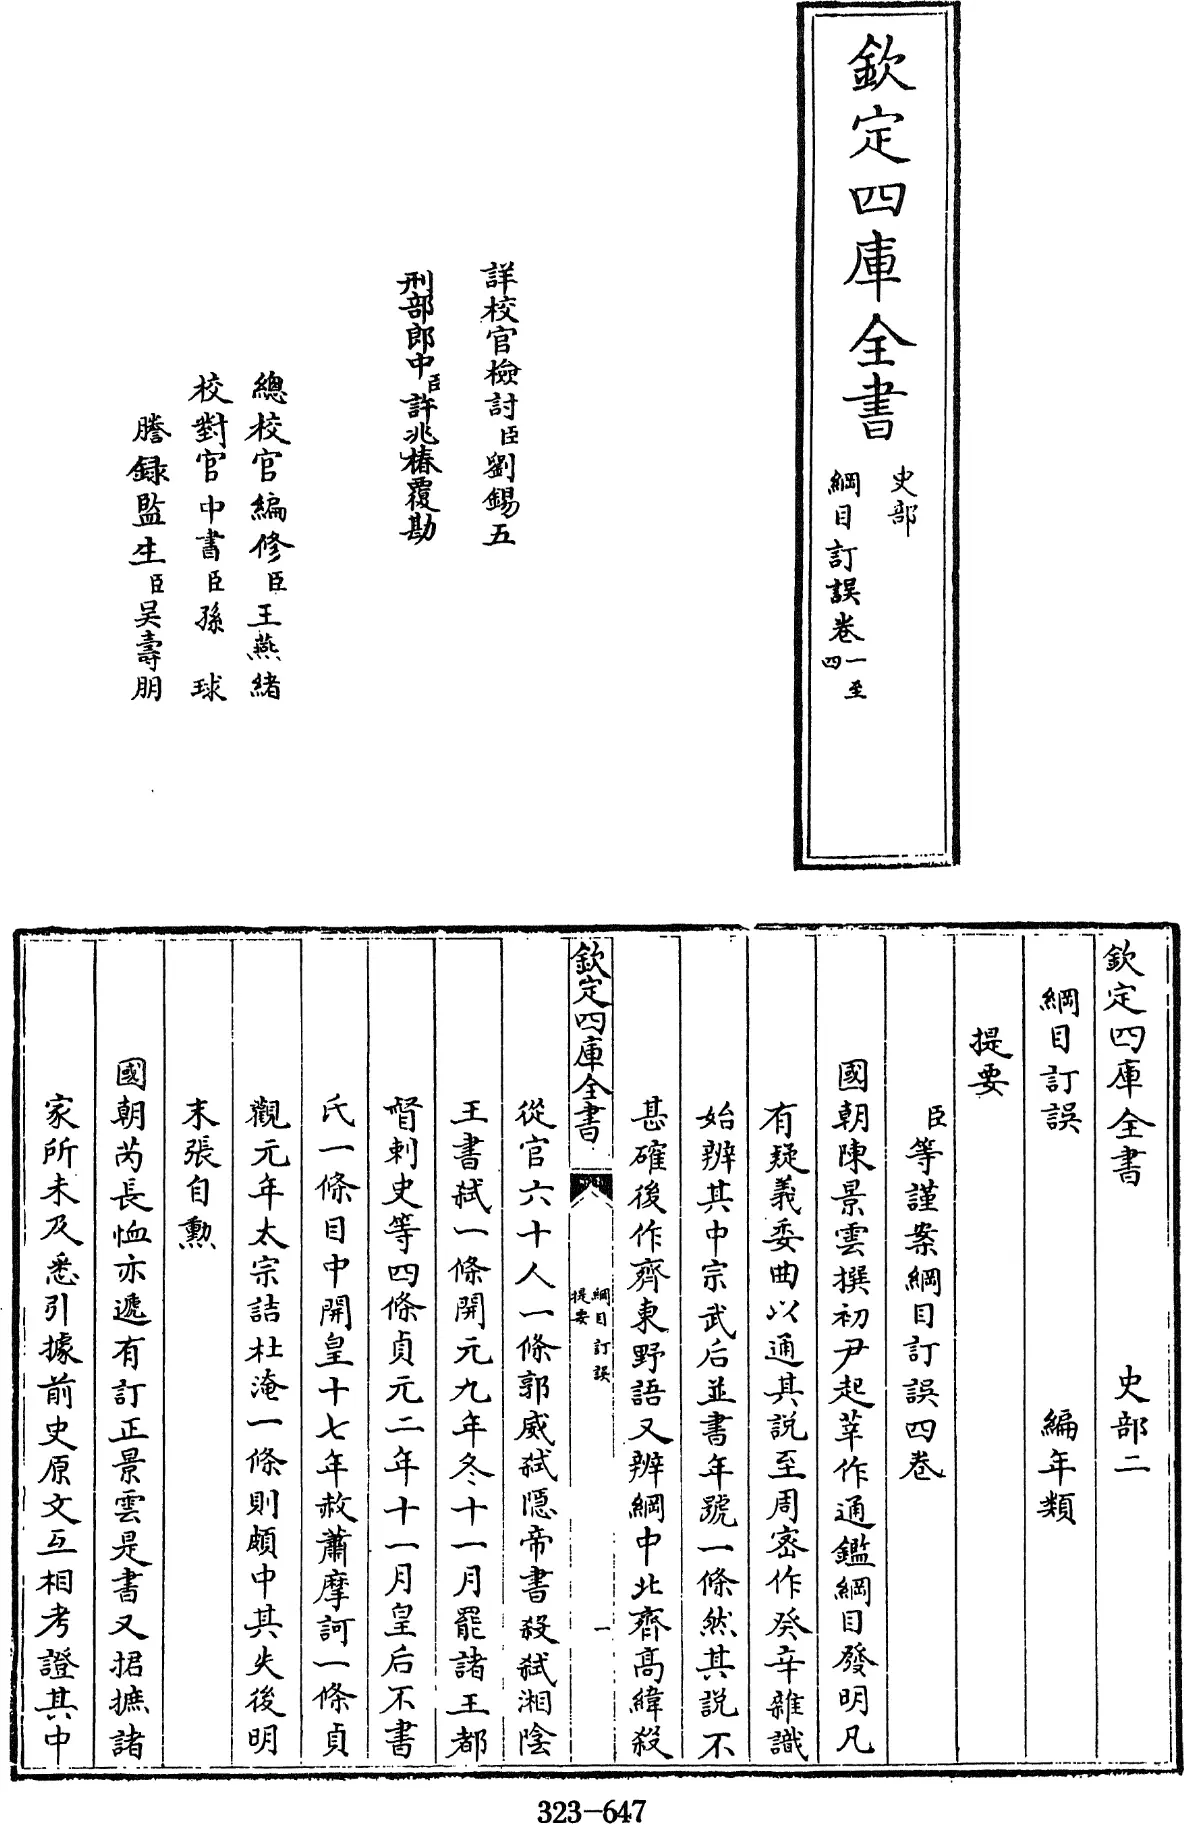 欽定四庫全書
史部
綱目訂誤卷一至四
詳校官檢討臣劉錫五
刑部郎中臣許兆椿覆勘
總校官編修臣王燕緒
校對官中書臣孫球
謄録監生臣吴壽朋
欽定四庫全書 史部二
綱目訂誤 編年類
提要
臣等謹案綱目訂誤四卷
國朝陳景雲撰初尹起莘作通鑑綱目發明凡
有疑義委曲以通其説至周密作癸辛雜識
始辨其中宗武后並書年號一條然其説不
甚確後作齊東野語又辨綱中北齊高緯殺
欽定四庫全書 綱目訂誤 提要 一
從官六十人一條郭威弑隱帝書殺弑湘陰
王書弑一條開元九年冬十一月罷諸王都
督刺史等四條貞元二年十一月皇后不書
氏一條目中開皇十七年赦蕭摩訶一條貞
觀元年太宗詰杜淹一條則頗中其失後明
末張自勲
國朝芮長恤亦遞有訂正景雲是書又捃摭諸
家所未及悉引據前史原文互相考證其中
323-647